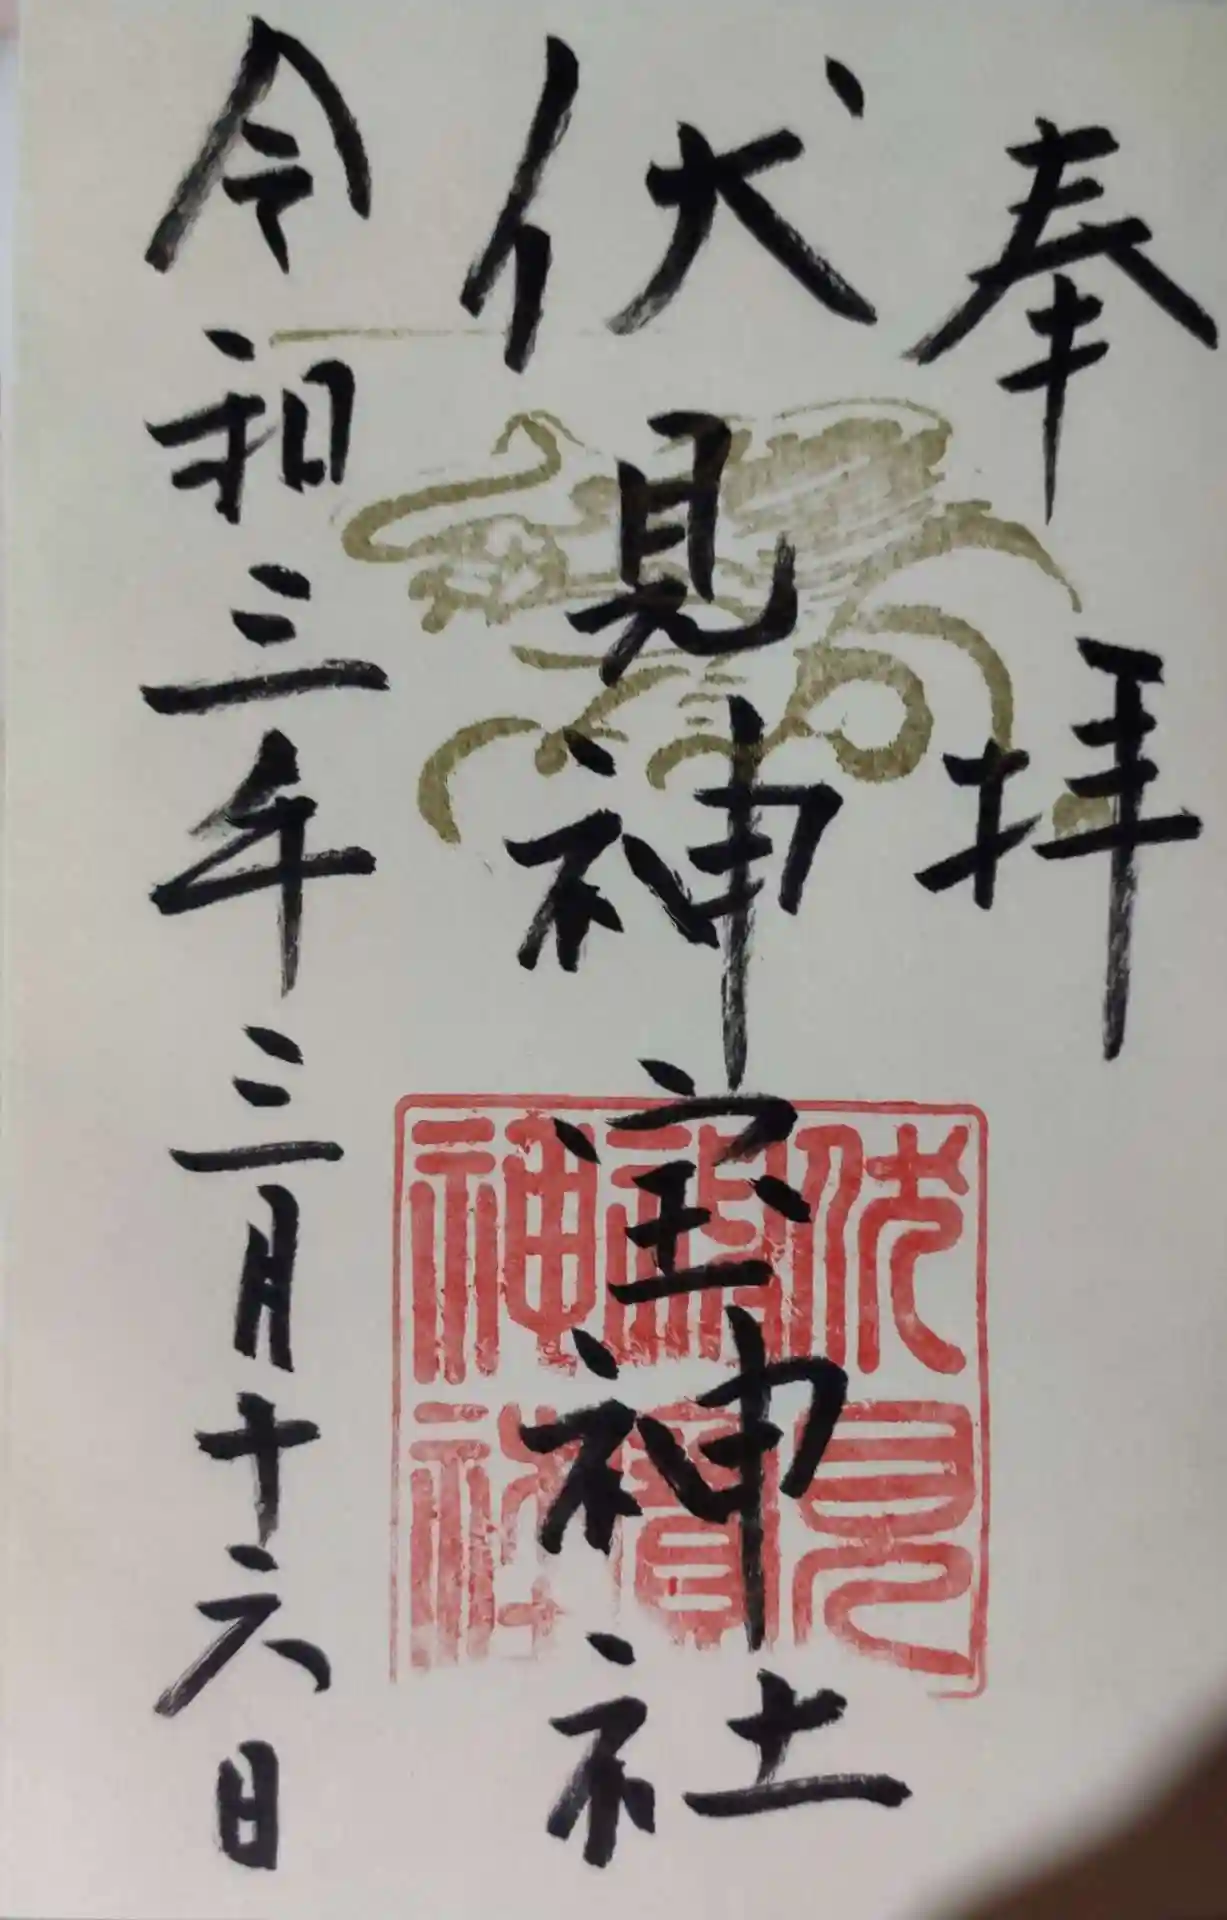 奉拝
伏見神宝神社
伏見
神寶
神社
令和三年三月十六日